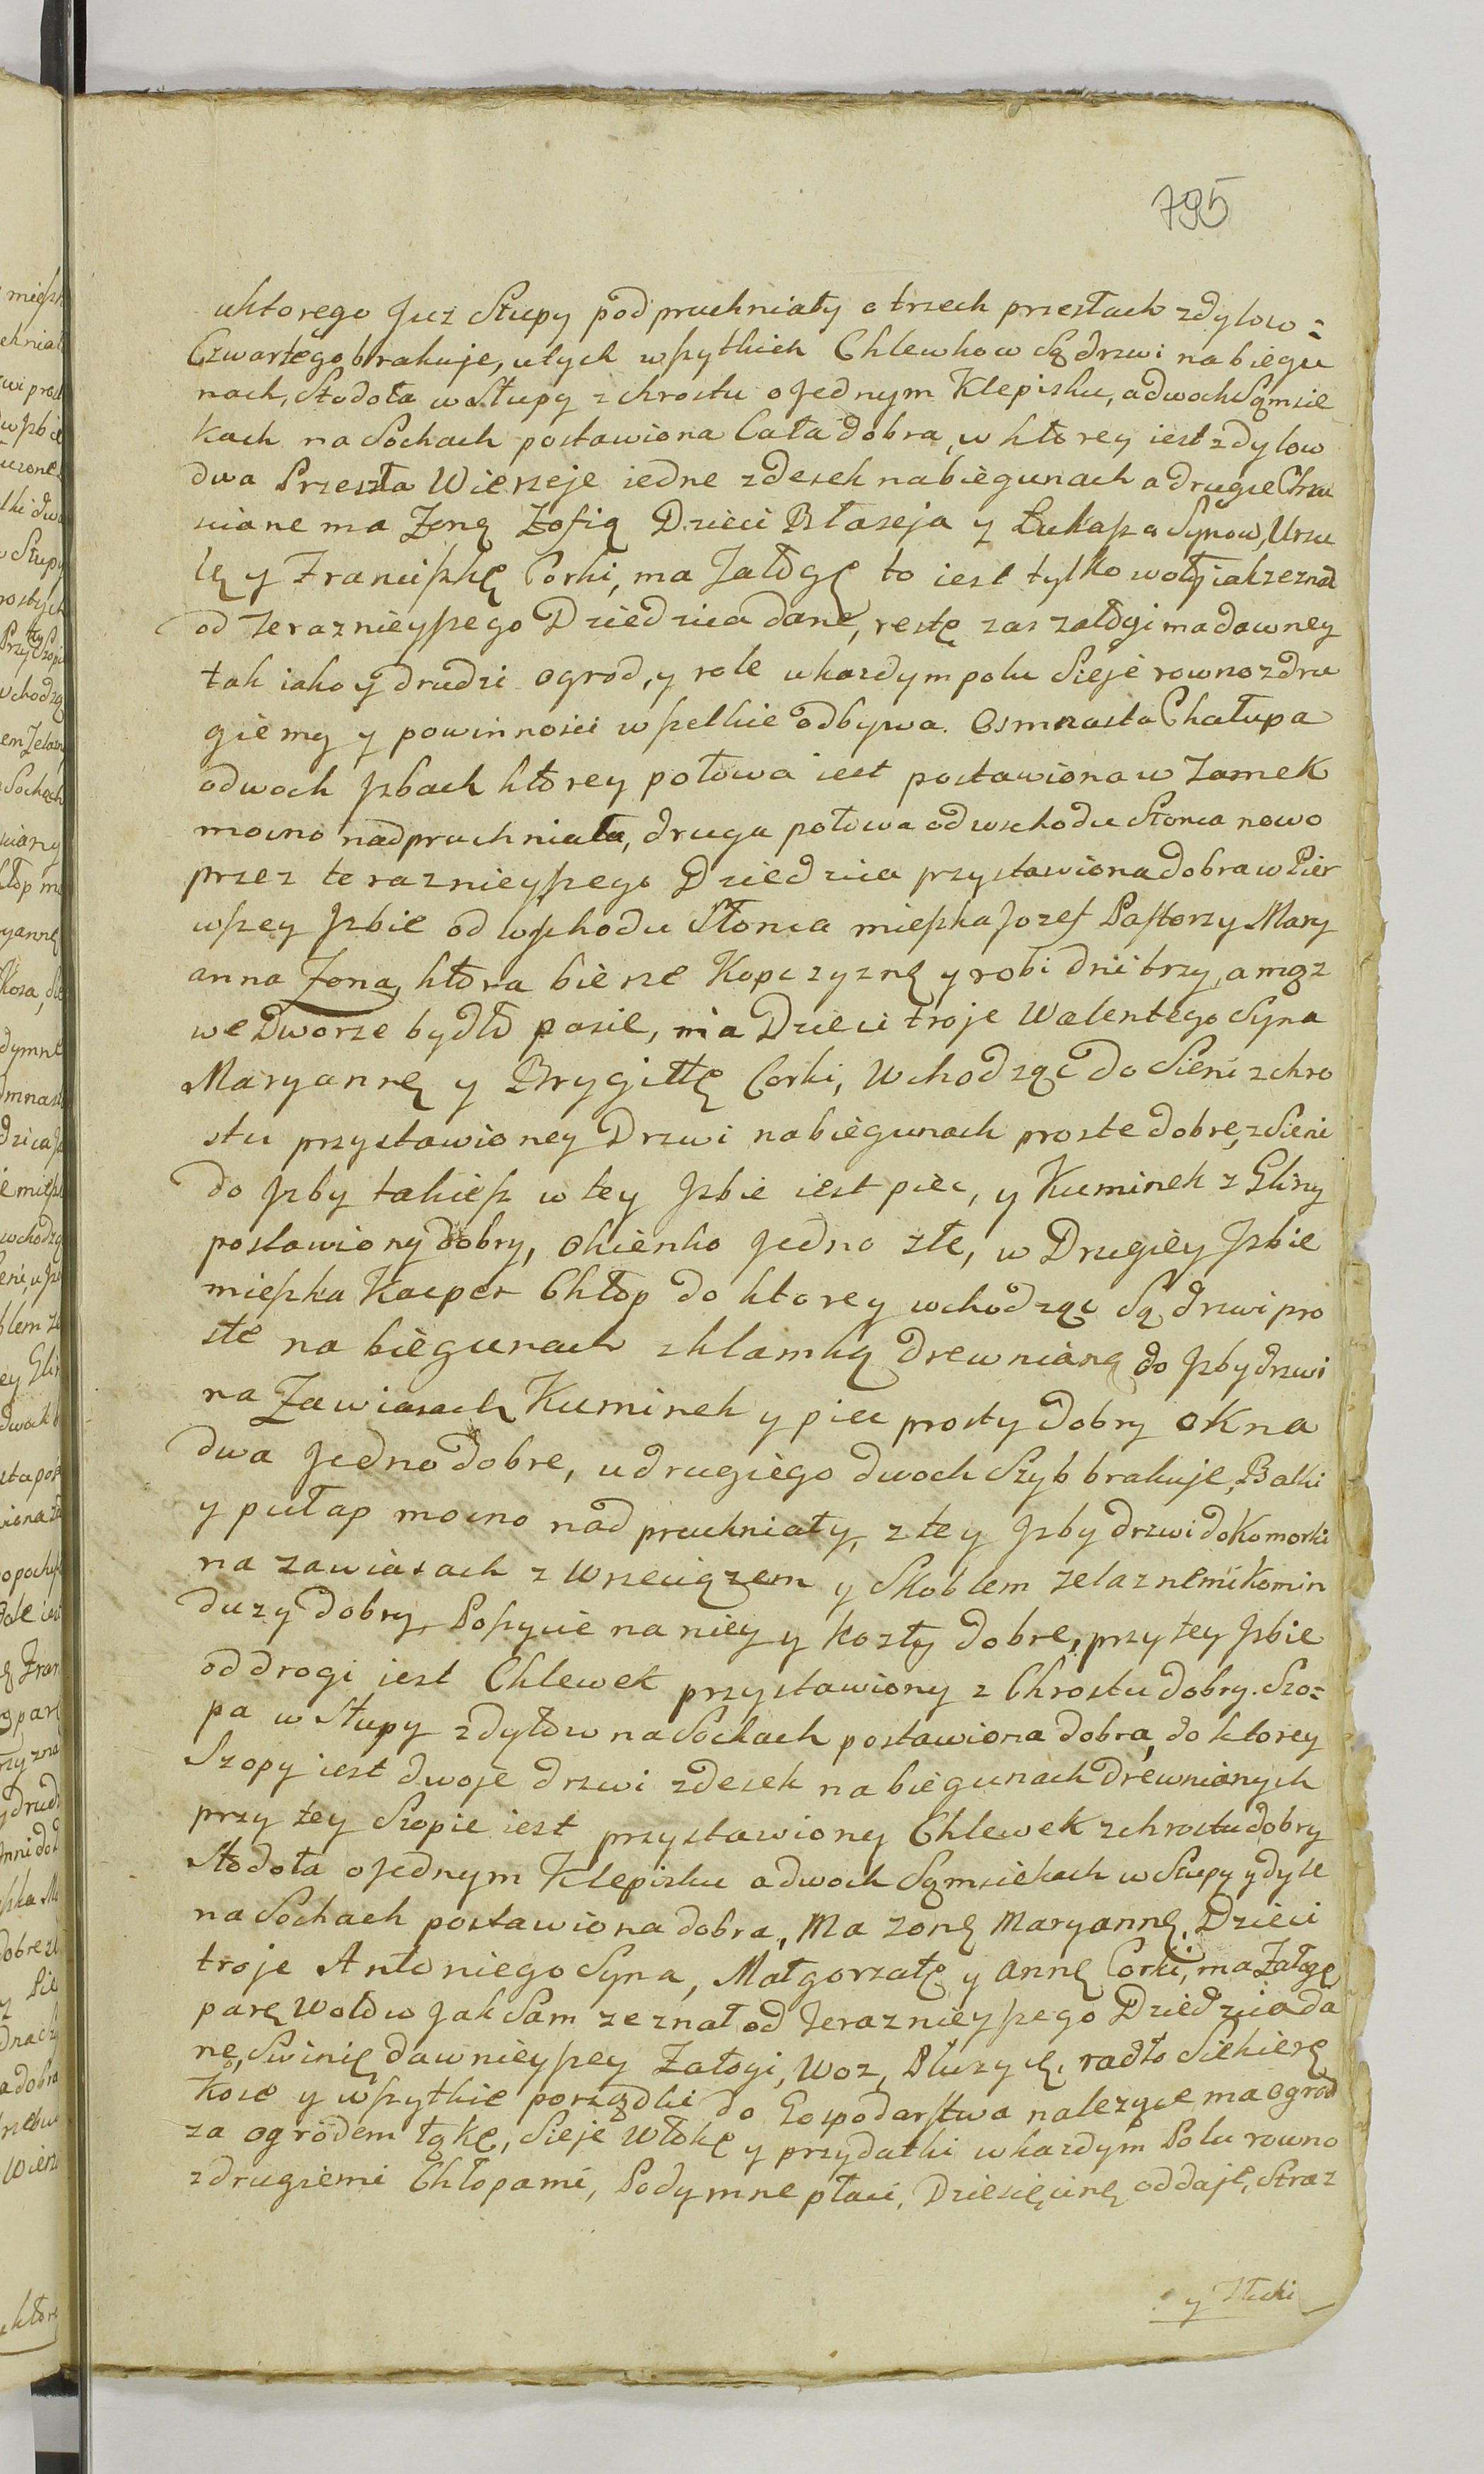 795
uktorego Juz Słupy podpruchniały o trzech przesłach zdylow=
Czwartego brakuje, utych wszytkich Chlewkow Są drzwi nabiegu
nach, Stodoła w Słupy z chrostu o Jednym Klepisku, a dwoch Sąmsie
kach na Sochach postawiona Cała dobra, w ktorey iest zdylow
dwa Przesła Wierzeje iedne zdesek nabiegunach a drugie Chru
sciane ma Zoną Zofią Dzieci Błazeja y Łukasza Synow, Urszu
lę y Franciszkę Corki, ma Załogę to iest tylko woły iak zeznał
od teraznieyszego Dziedzica dane, restę zas załogi ma dawney
tak iako y drudzi ogrod, y role w kazdym polu Sieje rowno zdru
giemy y powinnosci wszelkie odbywa. Osmnasta Chałupa
o dwoch Jzbach ktorey połowa iest postawiona w Zamek
mocno nadpruchniała, druga połowa od wschodu Słonca nowo
przez teraznieyszego Dziedzica przystawiona dobra w Pier
wszey Jzbie od Wschodu Słonca mieszka Jozef Pastorzy Mary
anna Zona, ktora bierze Kopczyznę y robi dni trzy, a mąz
we Dworze bydło pasie, ma Dzieci troje Walentego Syna
Maryannę y Brygittę Corki, Wchodząc do Sieni z chro
stu przystawioney Drzwi nabiegunach proste dobre, z Sieni
do Jzby takiesz w tey Jzbie iest piec, y Kuminek z Gliny
postawiony dobry, Okienko Jedno złe, w Drugiey Jzbie
mieszka Kacper Chłop do ktorey wchodząc Są drzwi pro
ste na biegunach z klamką drewnianą do Jzby drzwi
na Zawiasach Kuminek y piec prosty dobry okna
dwa Jedno dobre, u drugiego dwoch Szyb brakuje, Balki
y pułap mocno nadpruchniały, z tey Jzby drzwi do Komorki
na zawiasach z Wrzeciązem y Skoblem zelaznemi Komin
duzy dobry, Poszycie na niey y kozły dobre, przy tey Jzbie
od drogi iest Chlewek przystawiony z Chrostu dobry. Szo=
pa w Słupy z dylow na Sochach postawiona dobra, do ktorey
Szopy iest dwoje drzwi zdesek na biegunach drewnianych
przy tey Szopie iest przystawiony Chlewek z chrostu dobry
Stodoła o Jednym Klepisku a dwoch Sąmsiekach w Słupy y dyle
na Sochach postawiona dobra, Ma zonę Maryannę, Dzieci
troje Antoniego Syna, Małgorzatę y Annę Corki, ma Załogę
parę Wołow Jak Sam zeznał od teraznieyszego Dziedzica da
ne, Swinię dawnieyszey Załogi, Woz, Płuzycę, radło Siekierę
Kosę y wszytkie porządki do Gospodarstwa nalezące ma ogrod
za ogrodem łąkę, Sieje Włokę y przydatki w kazdym Polu rowno
z drugiemi Chłopami, Podymne płaci, Dziesięcinę oddaje, Straz
y Tłuki